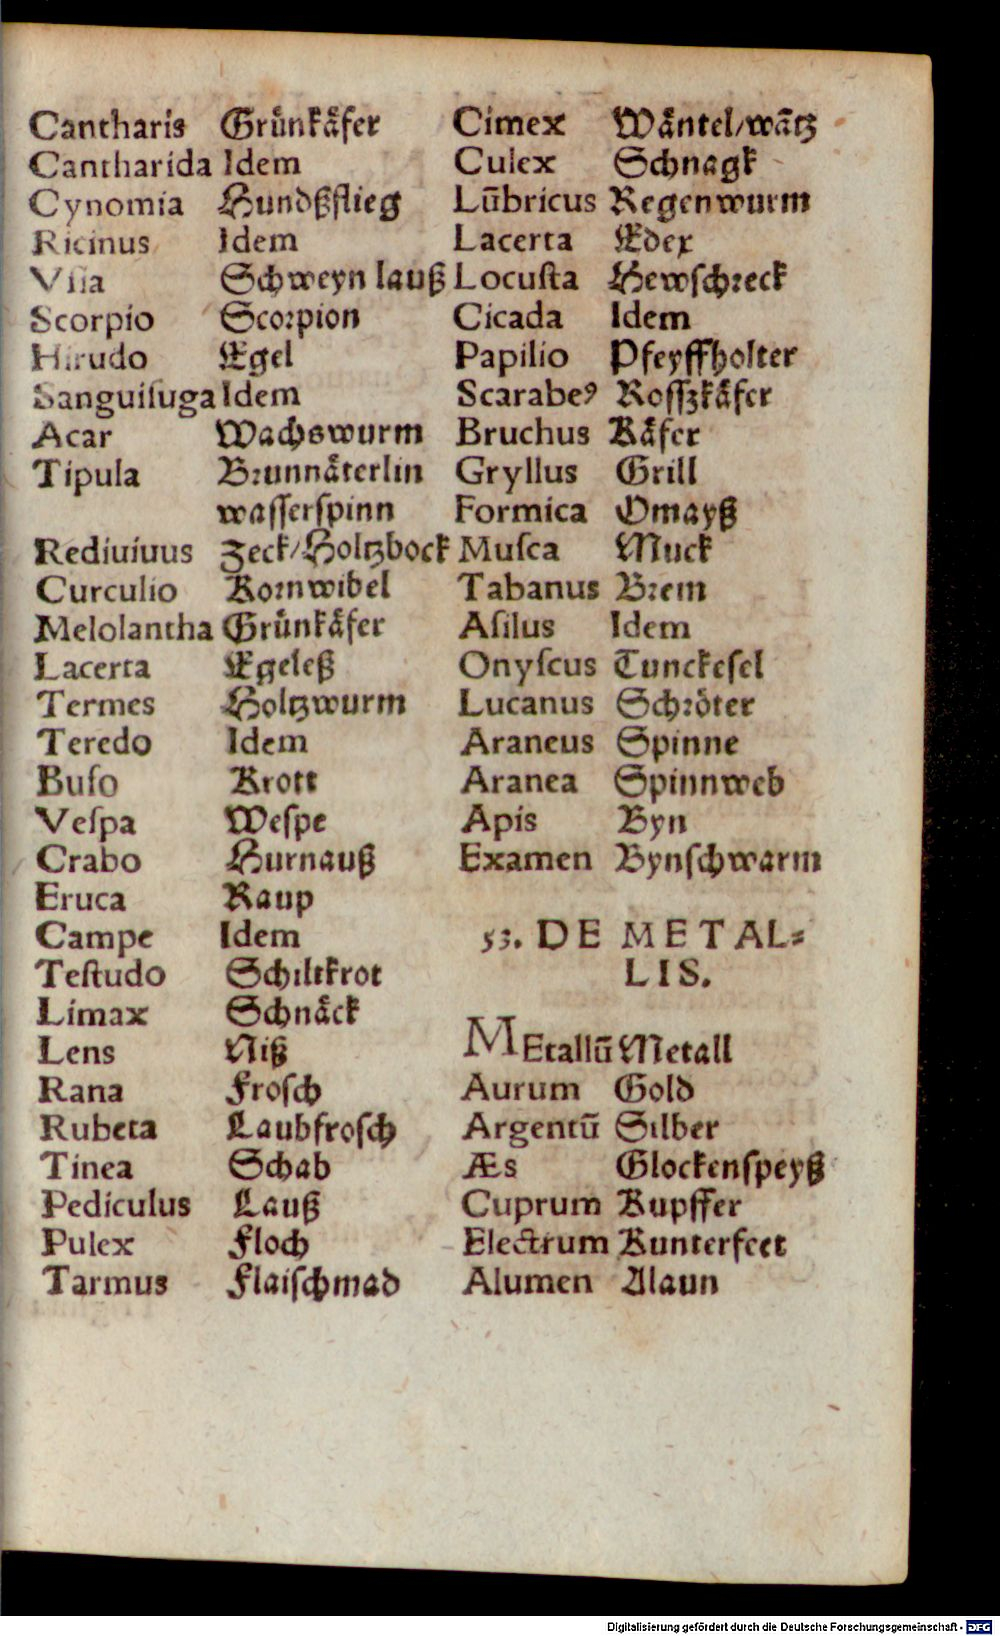 Cantharis Gruͤnkaͤfer
Cantharida Idem
Cynomia Hundßflieg
Ricinus Idem
Vſia Schweyn lauß
Scorpio Scorpion
Hirudo Egel
Sanguiſuga Idem
Acar Wachswurm
Tipula Brunnaͤterlin
waſſerſpinn
Rediuiuus Zeck/Holtzbock
Curculio Kornwibel
Melolantha Gruͤnkaͤfer
Lacerta Egeleß
Termes Holtzwurm
Teredo Idem
Bufo Krott
Veſpa Weſpe
Crabo Hurnauß
Eruca Raup
Campe Idem
Teſtudo Schiltkrot
Limax Schnaͤck
Lens Niß
Rana Froſch
Rubeta Laubfroſch
Tinea Schab
Pediculus Lauß
Pulex Floch
Tarmus Flaiſchmad
Cimex Waͤntel/waͤtz
Culex Schnagk
Lūbricus Regenwurm
Lacerta Edex
Locuſta Hewſchreck
Cicada Idem
Papilio Pfeyffholter
Scarabeꝰ Roſſzkaͤfer
Bruchus Kaͤfer
Gryllus Grill
Formica Omayß
Muſca Muck
Tabanus Brem
Aſilus Idem
Onyſcus Tunckeſel
Lucanus Schroͤter
Araneus Spinne
Aranea Spinnweb
Apis Byn
Examen Bynſchwarm
53. DE METAL⸗
LIS.
MEtallū Metall
Aurum Gold
Argentū Silber
Æs Glockenſpeyß
Cuprum Kupffer
Electrum Kunterfeet
Alumen Alaun
Digitalisierung gefördert durch die Deutsche Forschungsgemeinschaft - DFG